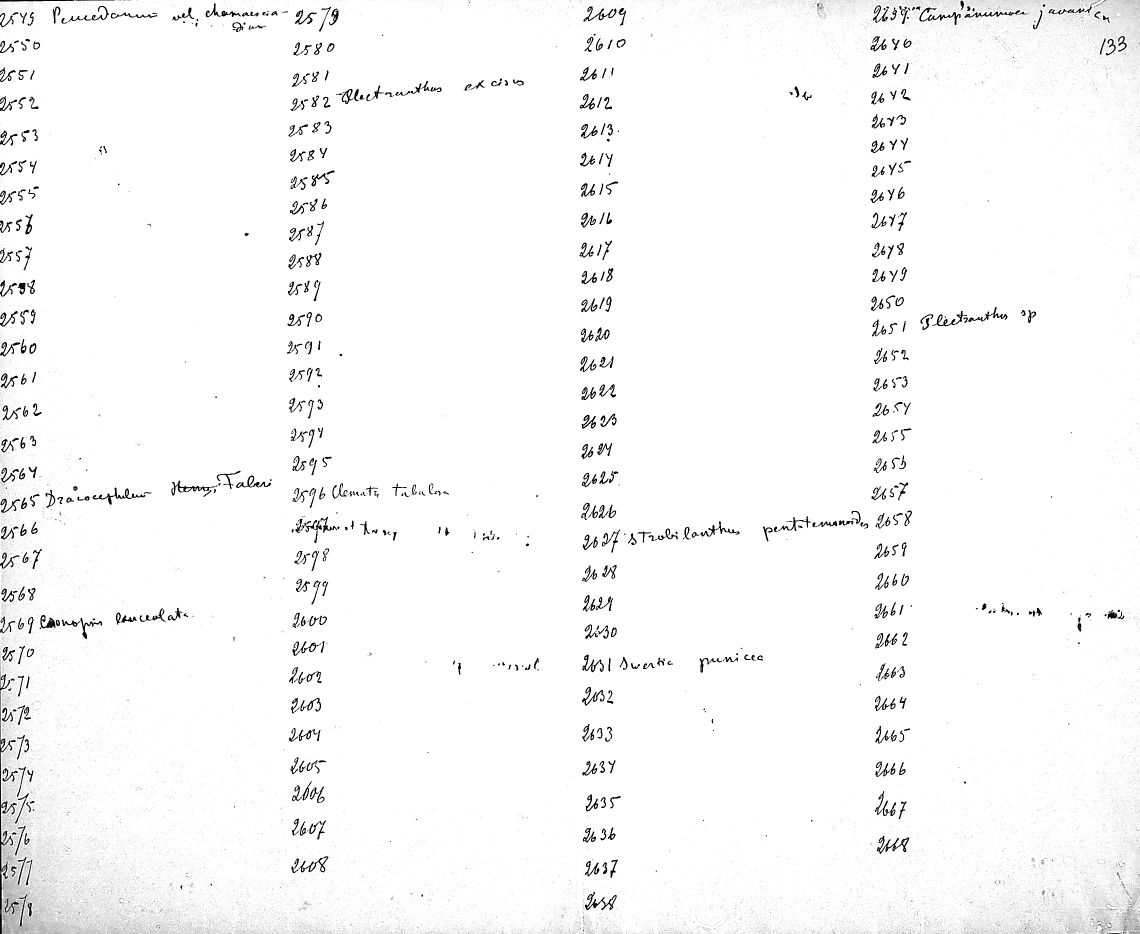 2549 Peucedanum vel chamaescia-
dium
2550
2551
2552
2553
2554
2555
2556
2557
2558
2559
2560
2561
2562
2563
2564
2565 Dracocephlum Fabri
2566
2567
2568
2569 lanceolata
2570
2571
2572
2573
2574
2575
2576
2577
2578
2579
2580
2581
2582 Plectranthus excisus
2583
2584
2585
2586
2587
2588
2589
2590
2591
2592
2593
2594
2595
2596 Clematis tubulosa
2597
2598
2599
2600
2601
2602
2603
2604
2605
2606
2607
2608
2609
2610
2611
2612
2613
2614
2615
2616
2617
2618
2619
2620
2621
2622
2623
2624
2625
2626
2627 Strobilanthus pentstemonoides
2628
2629
2630
2631 Swertia punicea
2632
2633
2634
2635
2636
2637
2638
2639 Campanumoea javanica
133
2640
2641
2642
2643
2644
2645
2646
2647
2648
2649
2650
2651 Plectranthus sp
2652
2653
2654
2655
2656
2657
2658
2659
2660
2661
2662
2663
2664
2665
2666
2667
2668